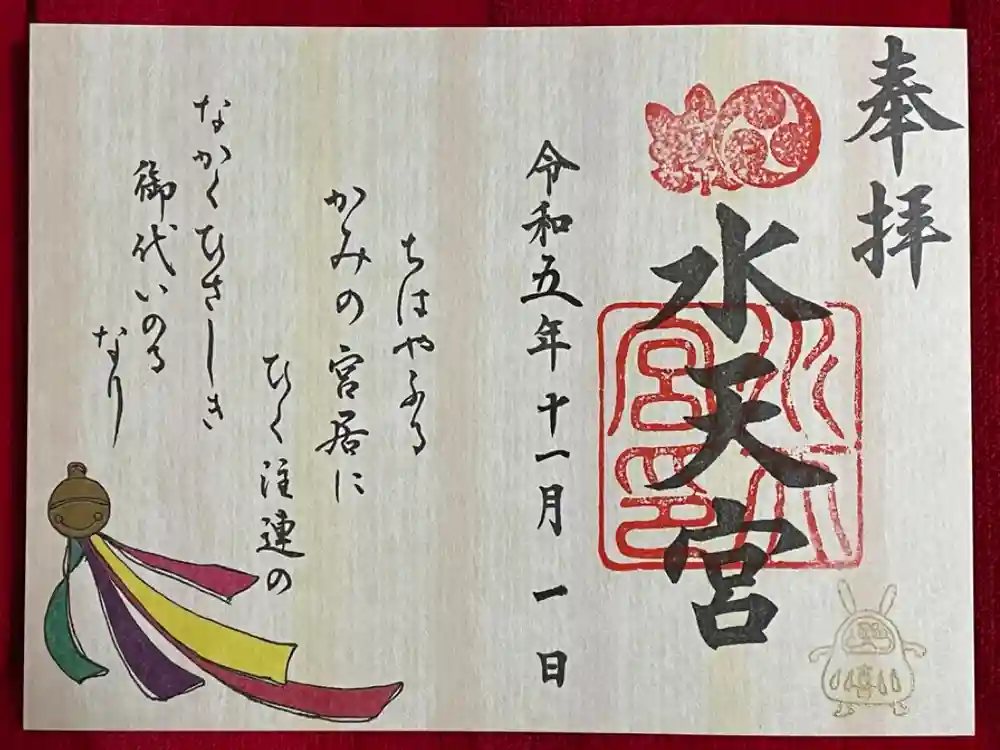 奉拝
水天宮
水天宮印
令和五年十一月一日
ちはやふる
かみの宮居に
ひく注連の
なかくひさしき
御代いのる
なり